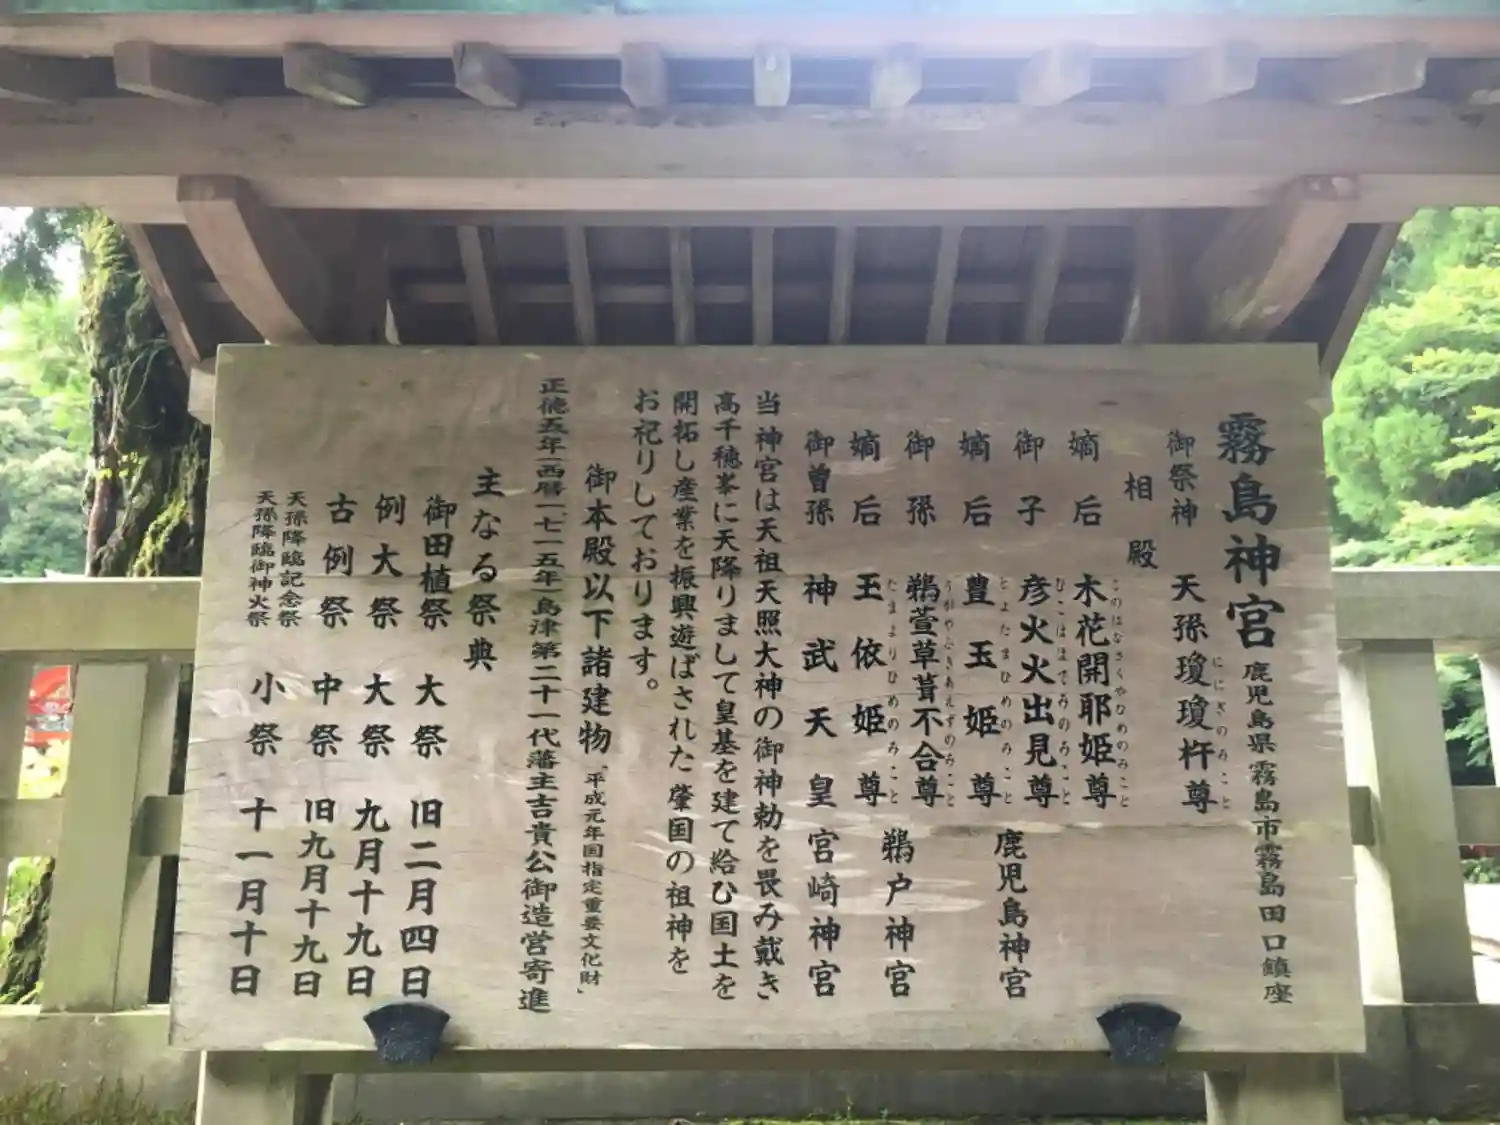 霧島神宮 鹿児島県霧島市霧島田口鎮座
御祭神 天孫瓊瓊杵尊
ににぎのみこと
相殿
嫡后 木花開耶姫尊
このはなさくやひめのみこと
御子 彦火火出見尊 鹿児島神宮
ひこほほでみのみこと
嫡后 豊玉姫尊
とよたまひめのみこと
御孫 鵜葺草葺不合尊 鵜戸神宮
うがやふきあえずのみこと
嫡后 玉依姫尊
たまよりひめのみこと
御曽孫 神武天皇 宮崎神宮
当神宮は天祖天照大神の御神勅を畏み戴き
高千穂峯に天降りまして皇基を建て給ひ国土を
開拓し産業を振興遊ばされた肇国の祖神を
お祀りしております。
御本殿以下諸建物「平成元年国指定重要文化財」
正徳五年(西暦一七一五年)島津第二十一代藩主吉貴公御造営寄進
主なる祭典
御田植祭 大祭 旧二月四日
例大祭 大祭 九月十九日
古例祭 中祭 旧九月十九日
天孫降臨記念祭
天孫降臨御神火祭 小祭 十一月十日